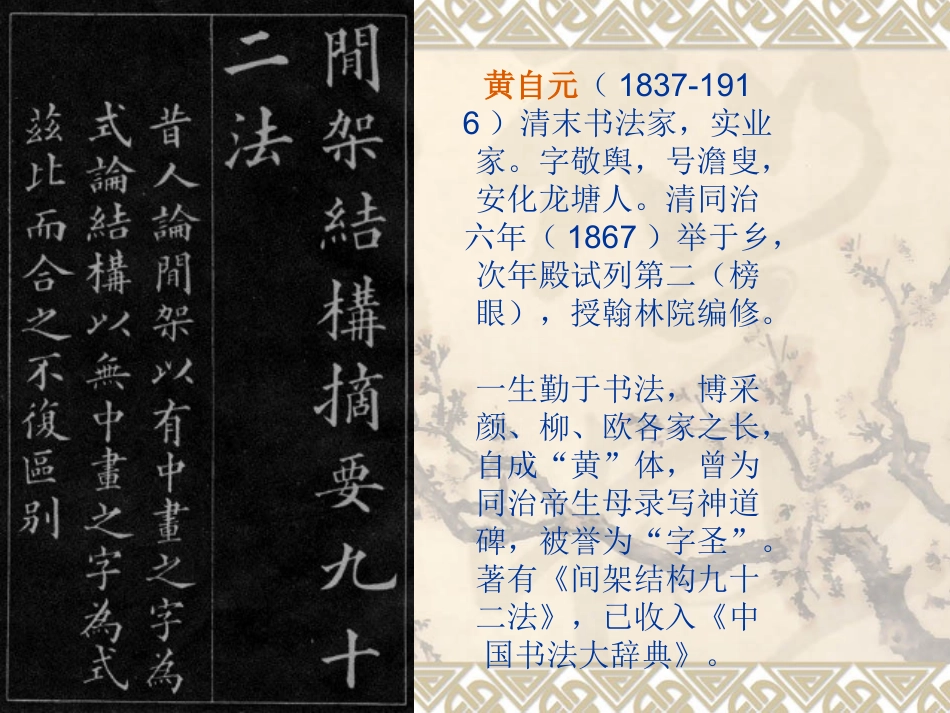 間架結構摘要九十
二法
昔人論間架以有中畫之字為
式論結構以無中畫之字為式
茲比而合之不復區别
黄自元（1837-191
6）清末书法家，实业
家。字敬舆，号澹叟，
安化龙塘人。清同治
六年（1867）举于乡，
次年殿试列第二（榜
眼），授翰林院编修。
一生勤于书法，博采
颜、柳、欧各家之长，
自成“黄”体，曾为
同治帝生母录写神道
碑，被誉为“字圣”。
著有《间架结构九十
二法》，已收入《中
国书法大辞典》。